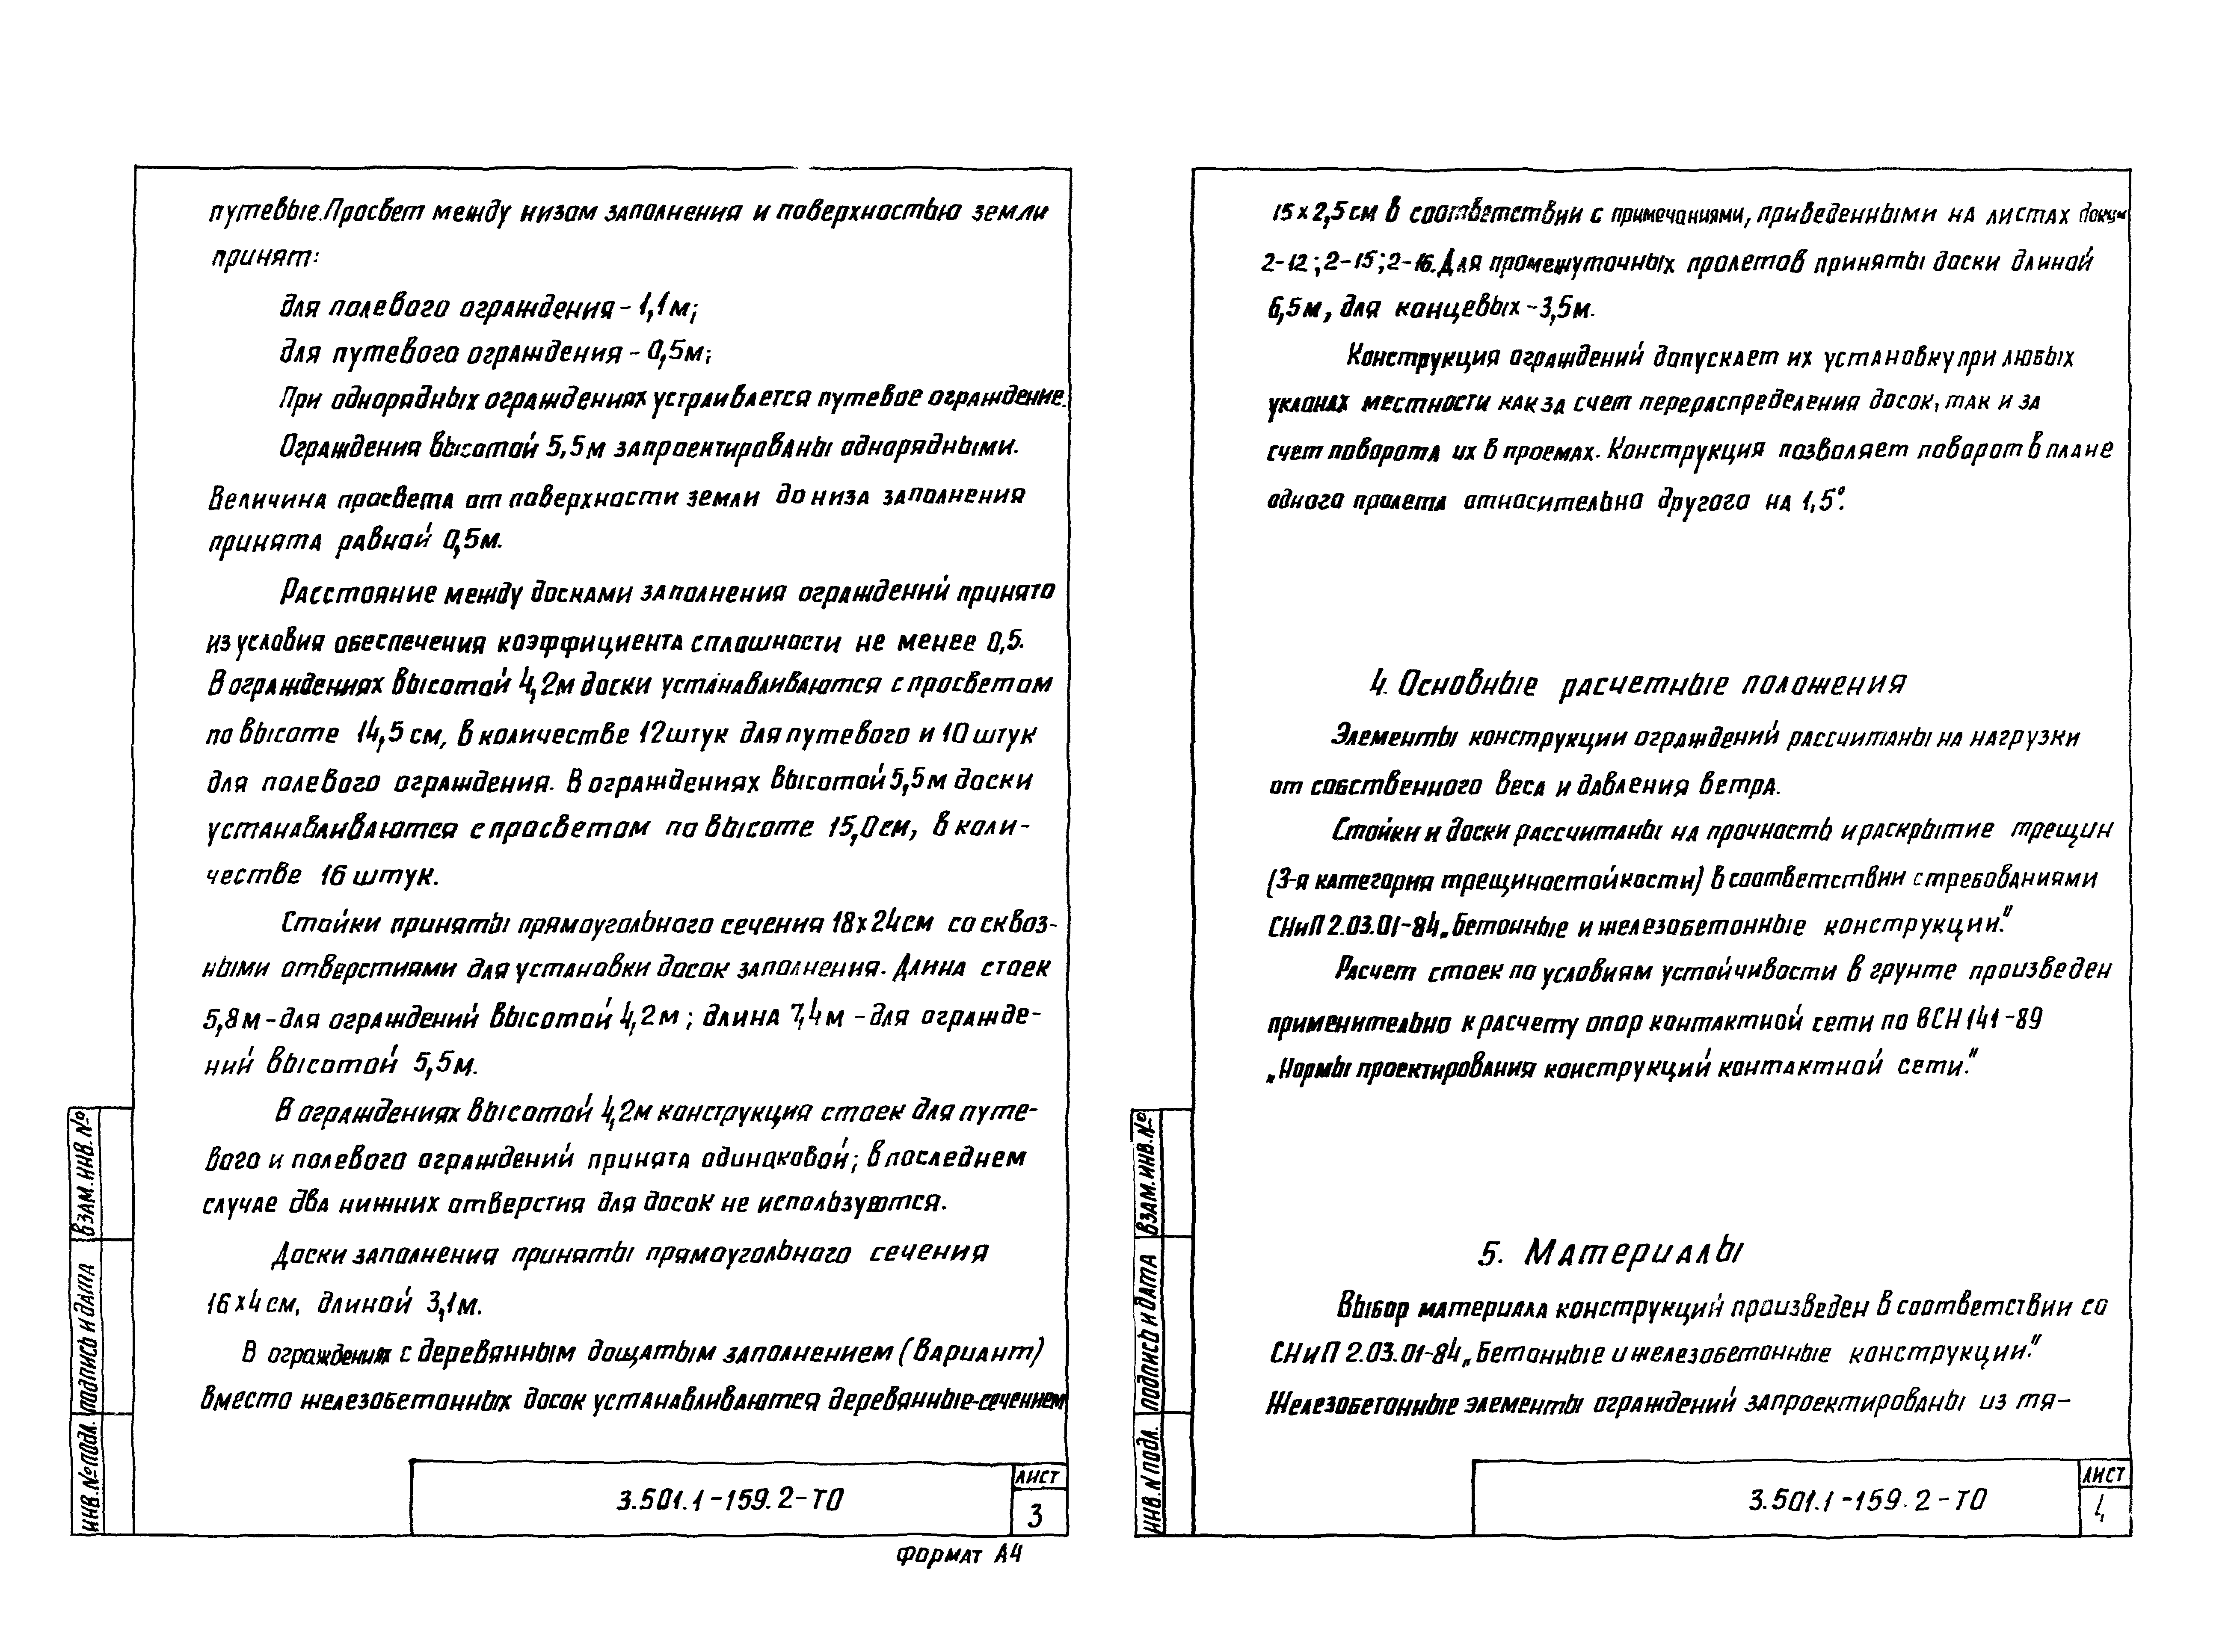 путевые. Просвет между низом заполнения и поверхностью земли
принят:
для полевого ограждения - 1,1м;
для путевого ограждения - 0,5м;
При однорядных ограждениях устраивается путевое ограждение.
Ограждения высотой 5,5м запроектированы однорядными.
Величина просвета от поверхности земли до низа заполнения
принята равной 0,5м.
Расстояние между досками заполнения ограждений принято
из условия обеспечения коэффициента сплошности не менее 0,5.
В ограждениях высотой 4,2м доски устанавливаются с просветом
по высоте 14,5 см, в количестве 12 штук для путевого и 10 штук
для полевого ограждения. В ограждениях высотой 5,5м доски
устанавливаются с просветом по высоте 15,0см, в коли-
честве 16 штук.
Стойки приняты прямоугольного сечения 18х24см со сквоз-
ными отверстиями для установки досок заполнения. Длина стоек
5,8м - для ограждений высотой 4,2м; длина 7,4м - для огражде-
ний высотой 5,5м.
В ограждениях высотой 4,2м конструкция стоек для путе-
вого и полевого ограждений принята одинаковой; в последнем
случае два нижних отверстия для досок не используются.
Доски заполнения приняты прямоугольного сечения
16х4см, длиной 3,1м.
В ограждениях с деревянным дощатым заполнением (вариант)
вместо железобетонных досок устанавливаются деревянные-сечением
3.501.1-159.2-ТО
ЛИСТ
3
Формат А4
ИНВ.№ПОДЛ.
ПОДПИСЬ И ДАТА
ВЗАМ.ИНВ.№
15х2,5см в соответствии с примечаниями, приведенными на листах докум
2-12; 2-15; 2-16. Для промежуточных пролетов приняты доски длиной
6,5м, для концевых - 3,5м.
Конструкция ограждений допускает их установку при любых
уклонах местности как за счет перераспределения досок, так и за
счет поворота их в проемах. Конструкция позволяет поворот в плане
одного пролета относительно другого на 1,5°.
4. Основные расчетные положения
Элементы конструкции ограждений рассчитаны на нагрузки
от собственного веса и давления ветра.
Стойки и доски рассчитаны на прочность и раскрытие трещин
(3-я категория трещиностойкости) в соответствии с требованиями
СНиП 2.03.01-84 „Бетонные и железобетонные конструкции."
Расчет стоек по условиям устойчивости в грунте произведен
применительно к расчету опор контактной сети по ВСН 141-89
„Нормы проектирования конструкций контактной сети."
5. Материалы
Выбор материала конструкций произведен в соответствии со
СНиП 2.03.01-84 „Бетонные и железобетонные конструкции."
Железобетонные элементы ограждений запроектированы из тя-
3.501.1-159.2-ТО
ЛИСТ
4
ИНВ.N ПОДЛ.
ПОДПИСЬ И ДАТА
ВЗАМ.ИНВ.№